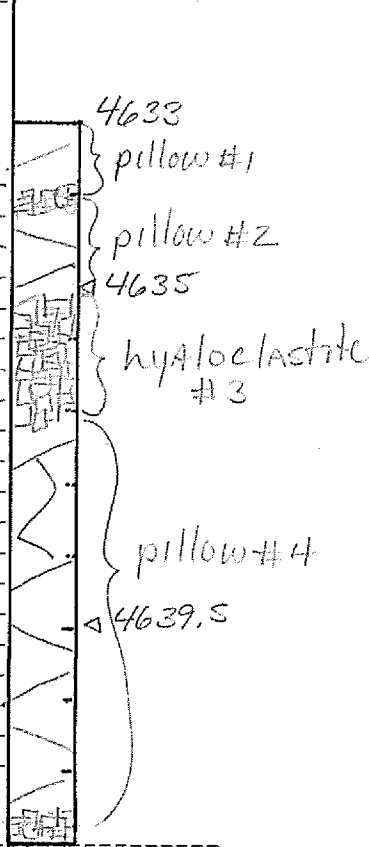 4633
pillow #1
pillow #2
4635
hyAloclastite
#3
pillow #4
4639.5